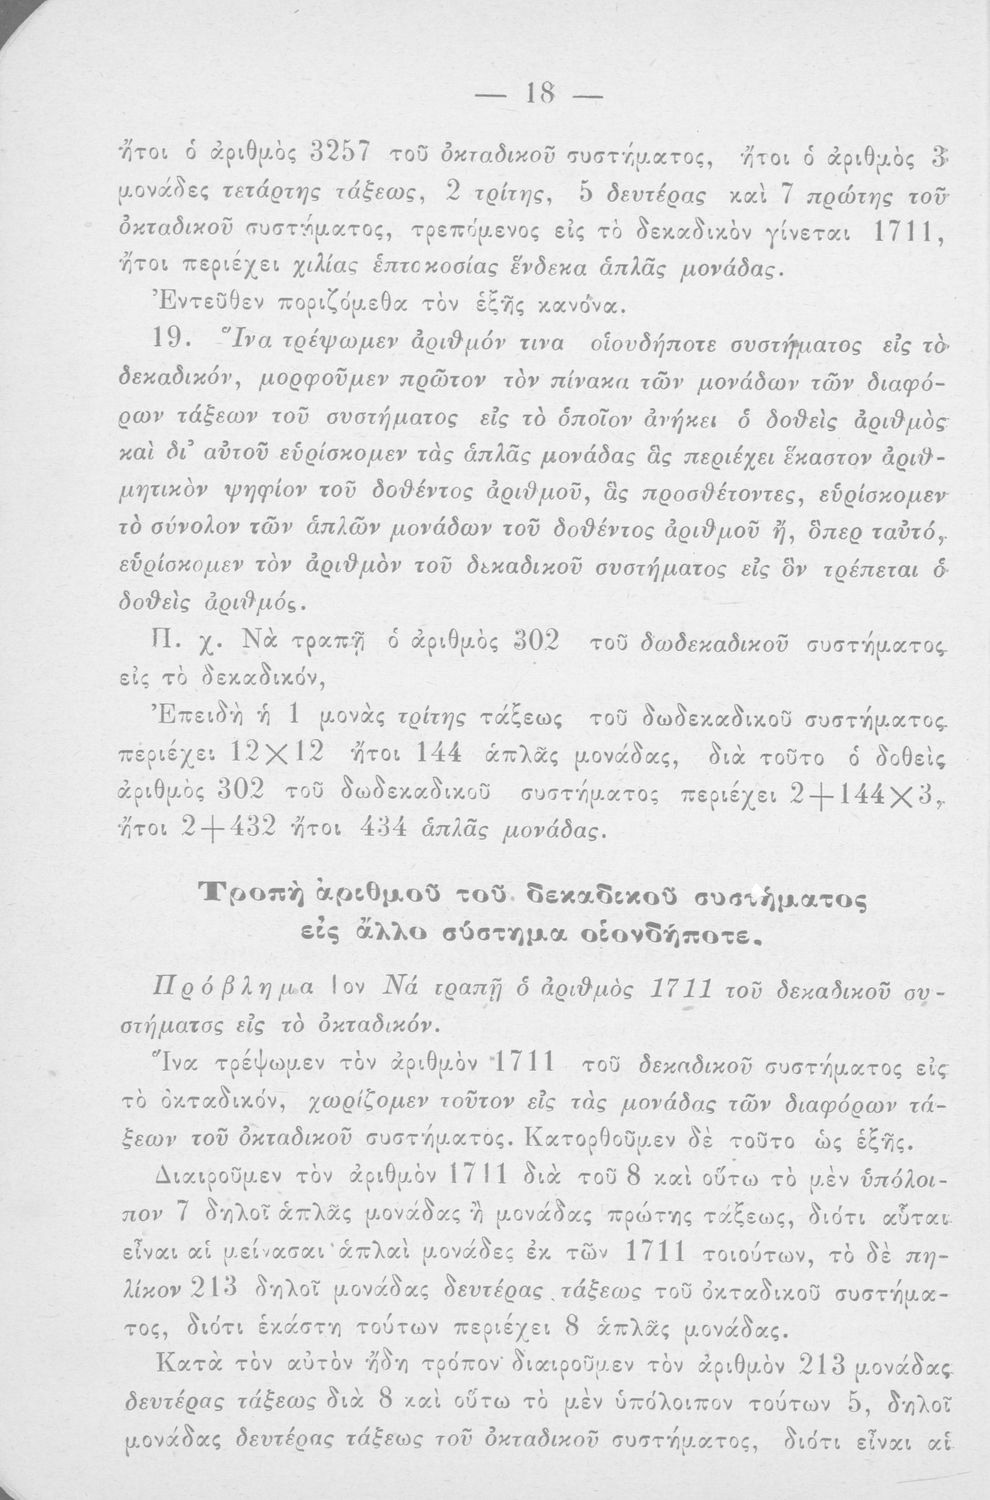 — 18 —
ἤτοι ὁ ἀριθμὸς 3257 τοῦ ὀκταδικοῦ συστήματος, ἤτοι ὁ ἀριθμὸς 3
μονάδες τετάρτης τάξεως, 2 τρίτης, 5 δευτέρας καὶ 7 πρώτης τοῦ
ὀκταδικοῦ συστήματος, τρεπόμενος εἰς τὸ δεκαδικὸν γίνεται 1711,
ἤτοι περιέχει χιλίας ἑπτακοσίας ἕνδεκα ἁπλᾶς μονάδας.
Ἐντεῦθεν ποριζόμεθα τὸν ἑξῆς κανόνα.
19. Ἵνα τρέψωμεν ἀριθμόν τινα οἱουδήποτε συστήματος εἰς τὸ
δεκαδικόν, μορφοῦμεν πρῶτον τὸν πίνακα τῶν μονάδων τῶν διαφό-
ρων τάξεων τοῦ συστήματος εἰς τὸ ὁποῖον ἀνήκει ὁ δοθεὶς ἀριθμὸς
καὶ δι' αὐτοῦ εὑρίσκομεν τὰς ἁπλᾶς μονάδας ἃς περιέχει ἕκαστον ἀριθ-
μητικὸν ψηφίον τοῦ δοθέντος ἀριθμοῦ, ἃς προσθέτοντες, εὑρίσκομεν
τὸ σύνολον τῶν ἁπλῶν μονάδων τοῦ δοθέντος ἀριθμοῦ ἤ, ὅπερ ταὐτό,
εὑρίσκομεν τὸν ἀριθμὸν τοῦ δεκαδικοῦ συστήματος εἰς ὃν τρέπεται ὁ
δοθεὶς ἀριθμός.
Π. χ. Νὰ τραπῇ ὁ ἀριθμὸς 302 τοῦ δωδεκαδικοῦ συστήματος
εἰς τὸ δεκαδικόν,
Ἐπειδὴ ἡ 1 μονὰς τρίτης τάξεως τοῦ δωδεκαδικοῦ συστήματος
περιέχει 12×12 ἤτοι 144 ἁπλᾶς μονάδας, διὰ τοῦτο ὁ δοθεὶς
ἀριθμὸς 302 τοῦ δωδεκαδικοῦ συστήματος περιέχει 2+144×3,
ἤτοι 2+432 ἤτοι 434 ἁπλᾶς μονάδας.
Τροπὴ ἀριθμοῦ τοῦ δεκαδικοῦ συστήματος
εἰς ἄλλο σύστημα οἱονδήποτε.
Πρόβλημα 1ον Νά τραπῇ ὁ ἀριθμὸς 1711 τοῦ δεκαδικοῦ συ-
στήματος εἰς τὸ ὀκταδικόν.
Ἵνα τρέψωμεν τὸν ἀριθμὸν 1711 τοῦ δεκαδικοῦ συστήματος εἰς
τὸ ὀκταδικόν, χωρίζομεν τοῦτον εἰς τὰς μονάδας τῶν διαφόρων τά-
ξεων τοῦ ὀκταδικοῦ συστήματος. Κατορθοῦμεν δὲ τοῦτο ὡς ἑξῆς.
Διαιροῦμεν τὸν ἀριθμὸν 1711 διὰ τοῦ 8 καὶ οὕτω τὸ μὲν ὑπόλοι-
πον 7 δηλοῖ ἁπλᾶς μονάδας ἢ μονάδας πρώτης τάξεως, διότι αὗται
εἶναι αἱ μείνασαι ἁπλαῖ μονάδες ἐκ τῶν 1711 τοιούτων, τὸ δὲ πη-
λίκον 213 δηλοῖ μονάδας δευτέρας τάξεως τοῦ ὀκταδικοῦ συστήμα-
τος, διότι ἑκάστη τούτων περιέχει 8 ἁπλᾶς μονάδας.
Κατὰ τὸν αὐτὸν ἤδη τρόπον διαιροῦμεν τὸν ἀριθμὸν 213 μονάδας
δευτέρας τάξεως διὰ 8 καὶ οὕτω τὸ μὲν ὑπόλοιπον τούτων 5, δηλοῖ
μονάδας δευτέρας τάξεως τοῦ ὀκταδικοῦ συστήματος, διότι εἶναι αἱ